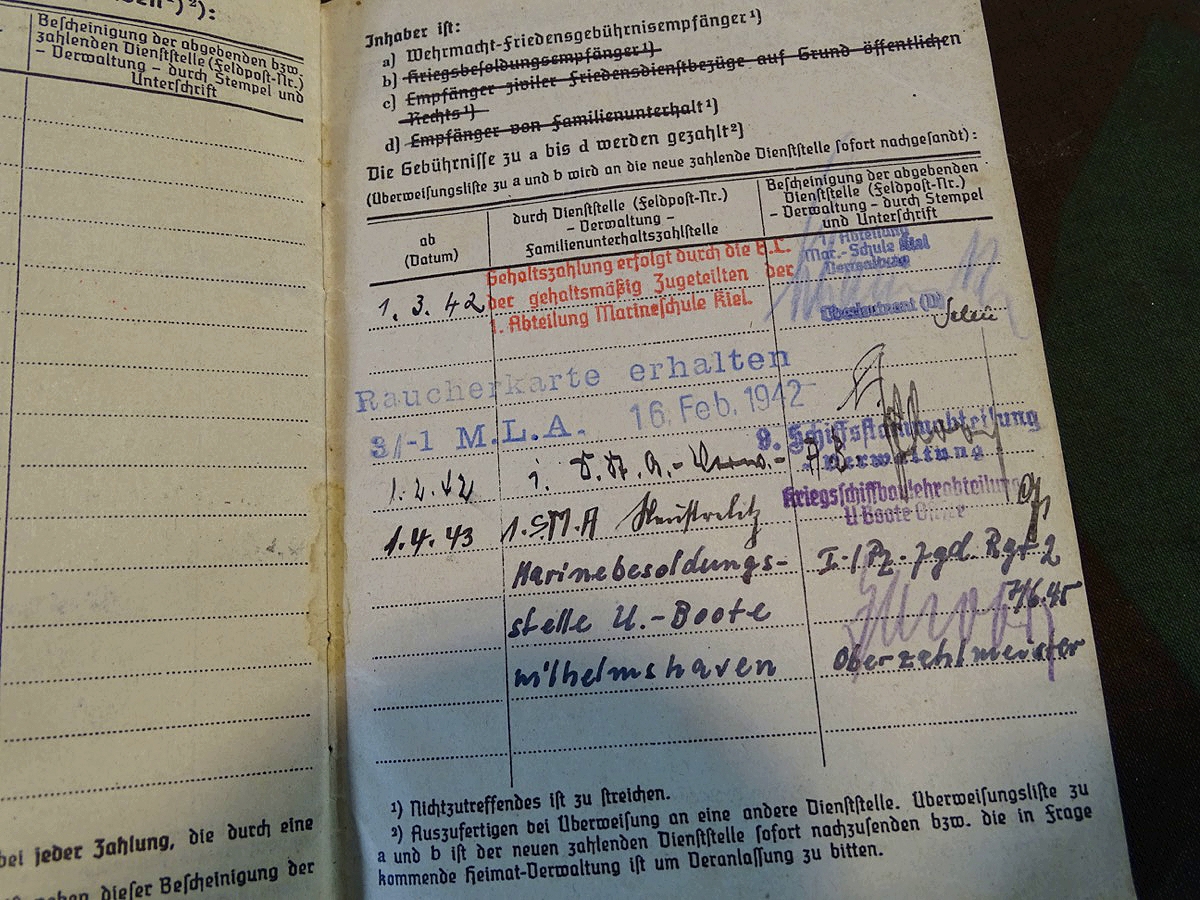 Bescheinigung der abgebenden bzw.
zahlenden Dienststelle (Feldpost-Nr.)
– Verwaltung – durch Stempel und
Unterschrift
bei jeder Zahlung, die durch eine
dieser Bescheinigung der
Inhaber ist:
a) Wehrmacht-Friedensgebührnisempfänger¹)
b) Kriegsbesoldungsempfänger¹)
c) Empfänger ziviler Friedensdienstbezüge auf Grund öffentlichen
Rechts¹)
d) Empfänger von Familienunterhalt¹)
Die Gebührnisse zu a bis d werden gezahlt²)
(Überweisungsliste zu a und b wird an die neue zahlende Dienststelle sofort nachgesandt):
ab
(Datum)
durch Dienststelle (Feldpost-Nr.)
– Verwaltung –
Familienunterhaltszahlstelle
Bescheinigung der abgebenden
Dienststelle (Feldpost-Nr.)
– Verwaltung – durch Stempel
und Unterschrift
1. 3. 42
Gehaltszahlung erfolgt durch die
der gehaltsmäßig Zugeteilten der
1. Abteilung Marineschule Kiel.
1. Abteilung
Mar.-Schule Kiel
Verwaltung
Raucherkarte erhalten
3/-1 M.L.A. 16. Feb. 1942
9. Schiffsstammabteilung
- Verwaltung -
1. 2. 42
Kriegsschiffbaulehrabteilung
U Boote
1. 4. 43
Marinebesoldungs-
stelle U.-Boote
Wilhelmshaven
I-/Pz-Jgd. Rgt. 2
Oberzahlmeister
¹) Nichtzutreffendes ist zu streichen.
²) Auszufertigen bei Überweisung an eine andere Dienststelle. Überweisungsliste zu
a und b ist der neuen zahlenden Dienststelle sofort nachzusenden bzw. die in Frage
kommende Heimat-Verwaltung ist um Veranlassung zu bitten.